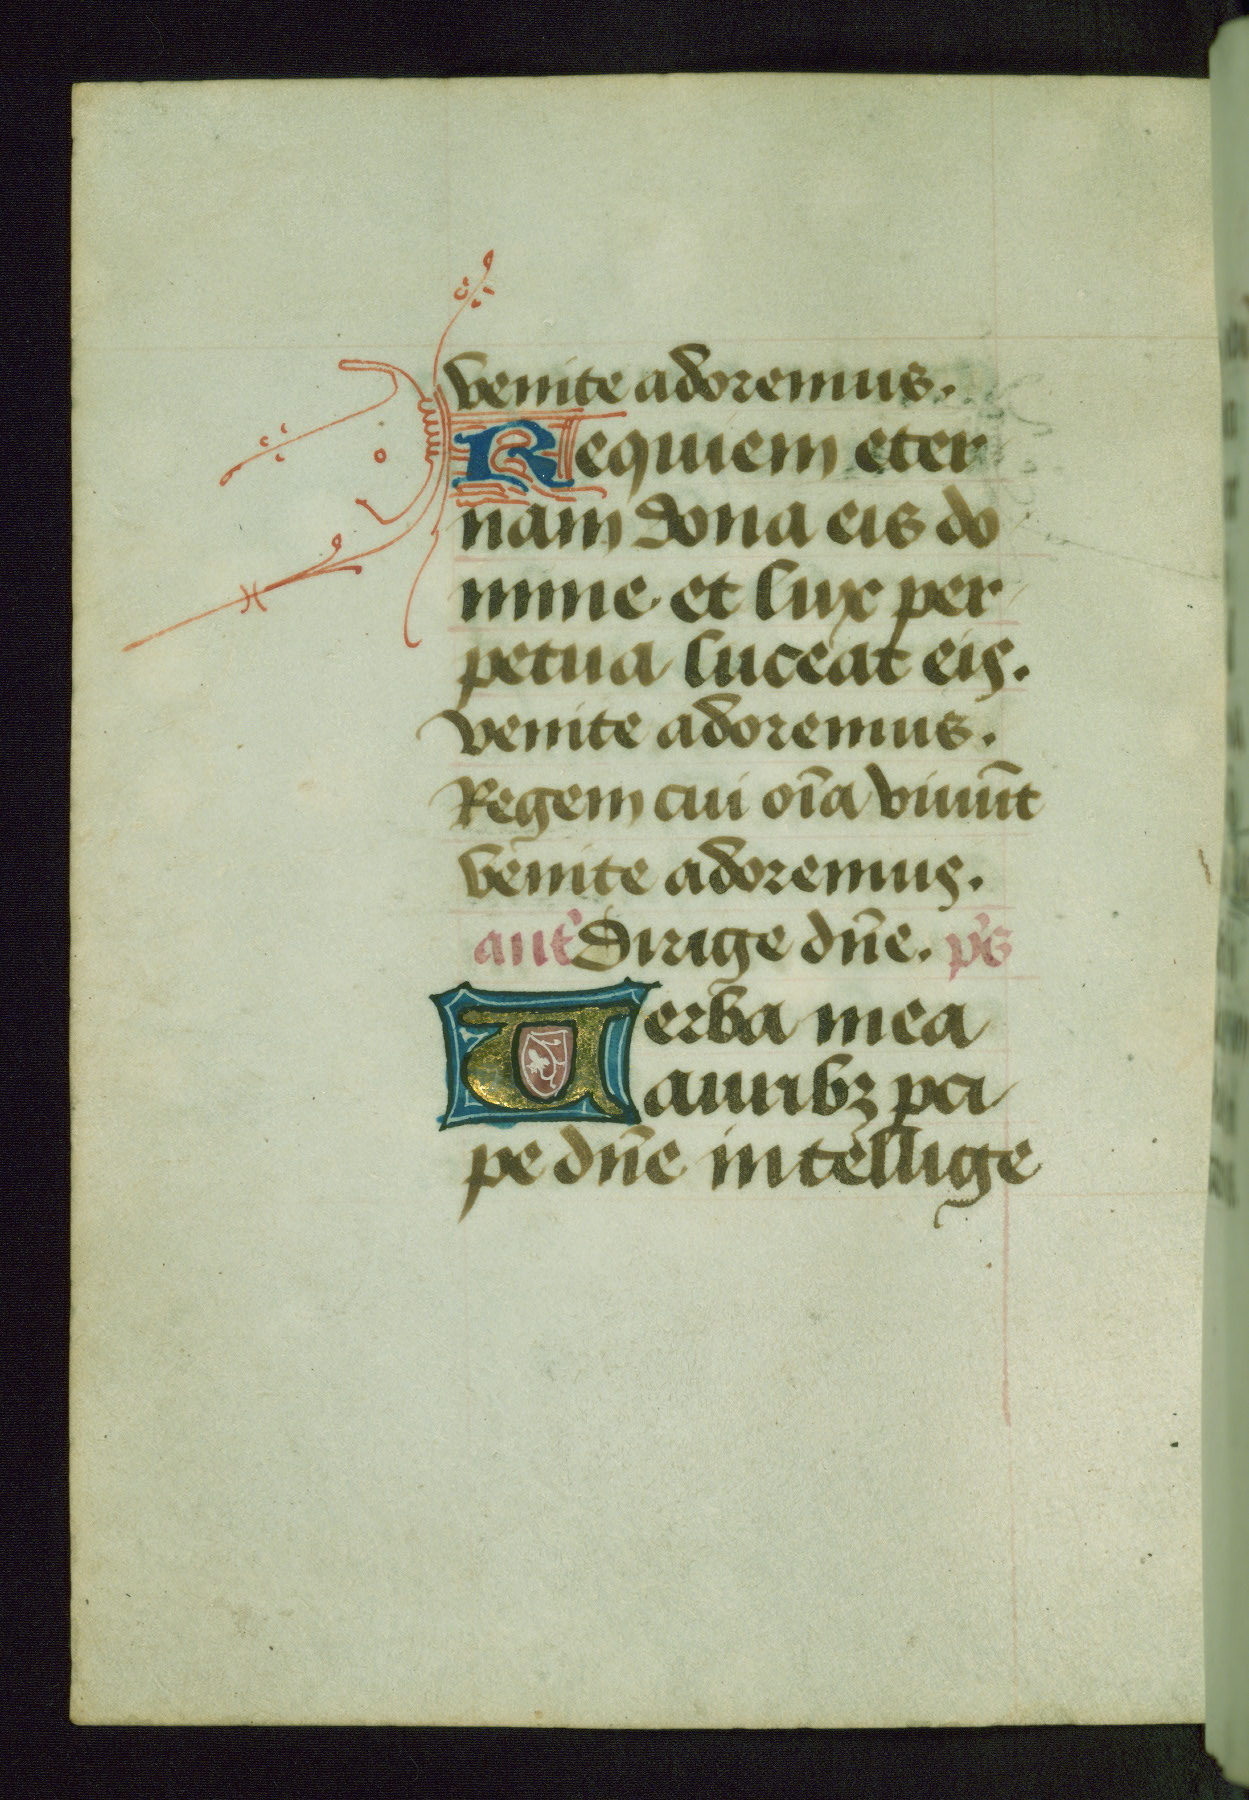 venite adoremus.
Requiem eter
nam dona eis do
mine et lux per
petua luceat eis.
venite adoremus.
Regem cui oīa viuūt
venite adoremus.
ant̾ Dirige dn̄e. p̄s
Uerba mea
auribꝫ ꝑci
pe dn̄e intellige